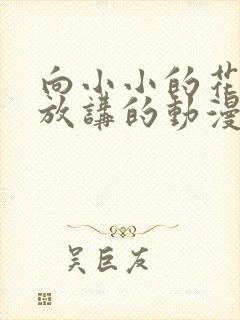 向小小的花
放講的動漫
吴巨友